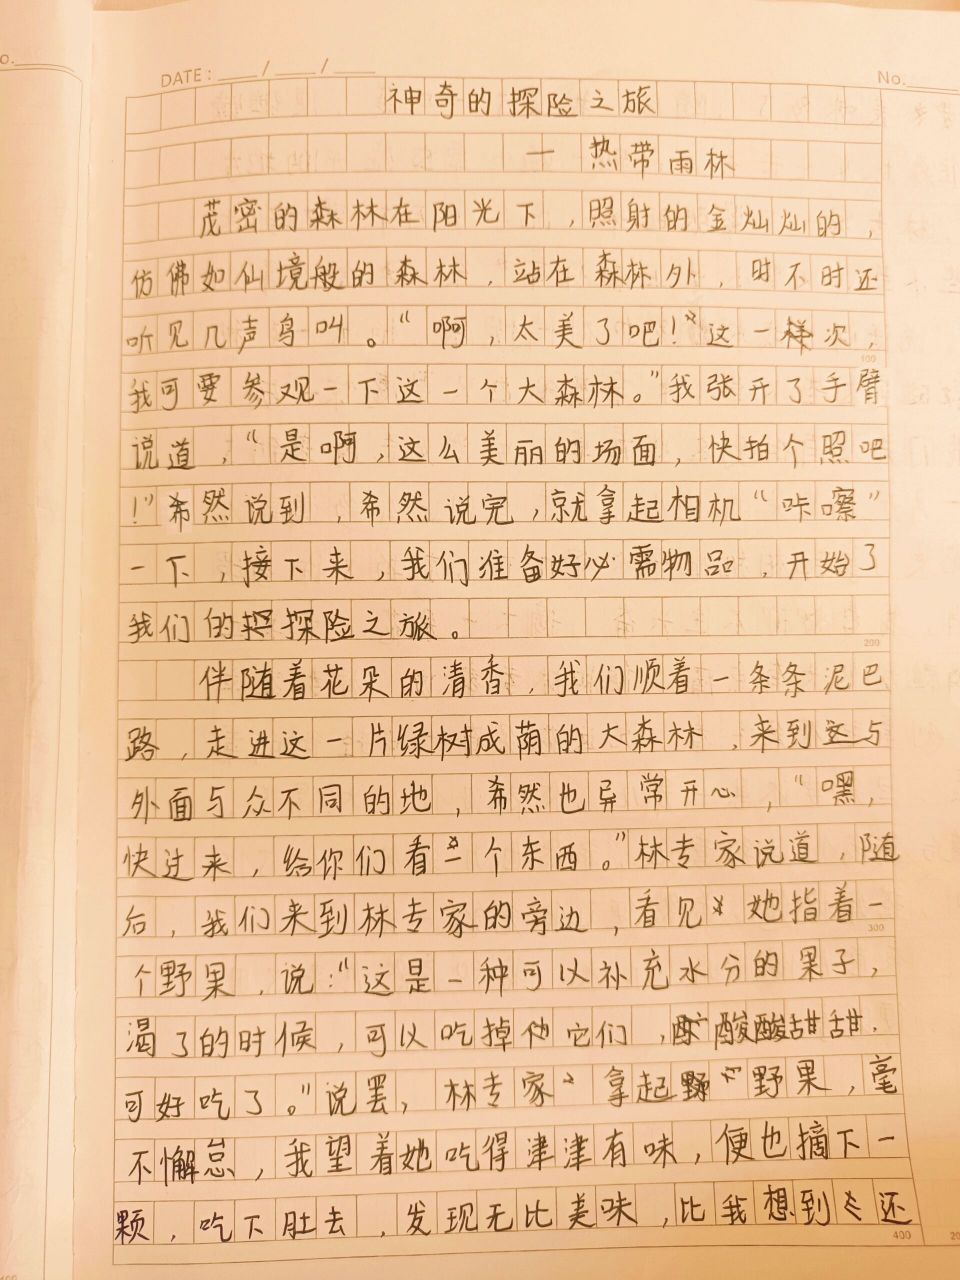 DATE: ___/___/___
No.
神奇的探险之旅
一 热带雨林
茂密的森林在阳光下,照射的金灿灿的,
仿佛如仙境般的森林,站在森林外,时不时还
听见几声鸟叫。“啊,太美了吧!”这一样次,
100
我可要参观一下这一个大森林。”我张开了手臂
说道,“是啊,这么美丽的场面,快拍个照吧
!”希然说到,希然说完,就拿起相机“咔嚓”
一下,接下来,我们准备好必需物品,开始了
我们的探险之旅。
200
伴随着花朵的清香,我们顺着一条条泥巴
路,走进这一片绿树成荫的大森林,来到这与
外面与众不同的地,希然也异常开心,“嘿,
快过来,给你们看一个东西。”林专家说道,随
后,我们来到林专家的旁边,看见她指着一
300
个野果,说:“这是一种可以补充水分的果子,
渴了的时候,可以吃掉它们,酸酸甜甜,
可好吃了。”说罢,林专家拿起野果,毫
不懈怠,我望着她吃得津津有味,便也摘下一
颗,吃下肚去,发现无比美味,比我想到还
400